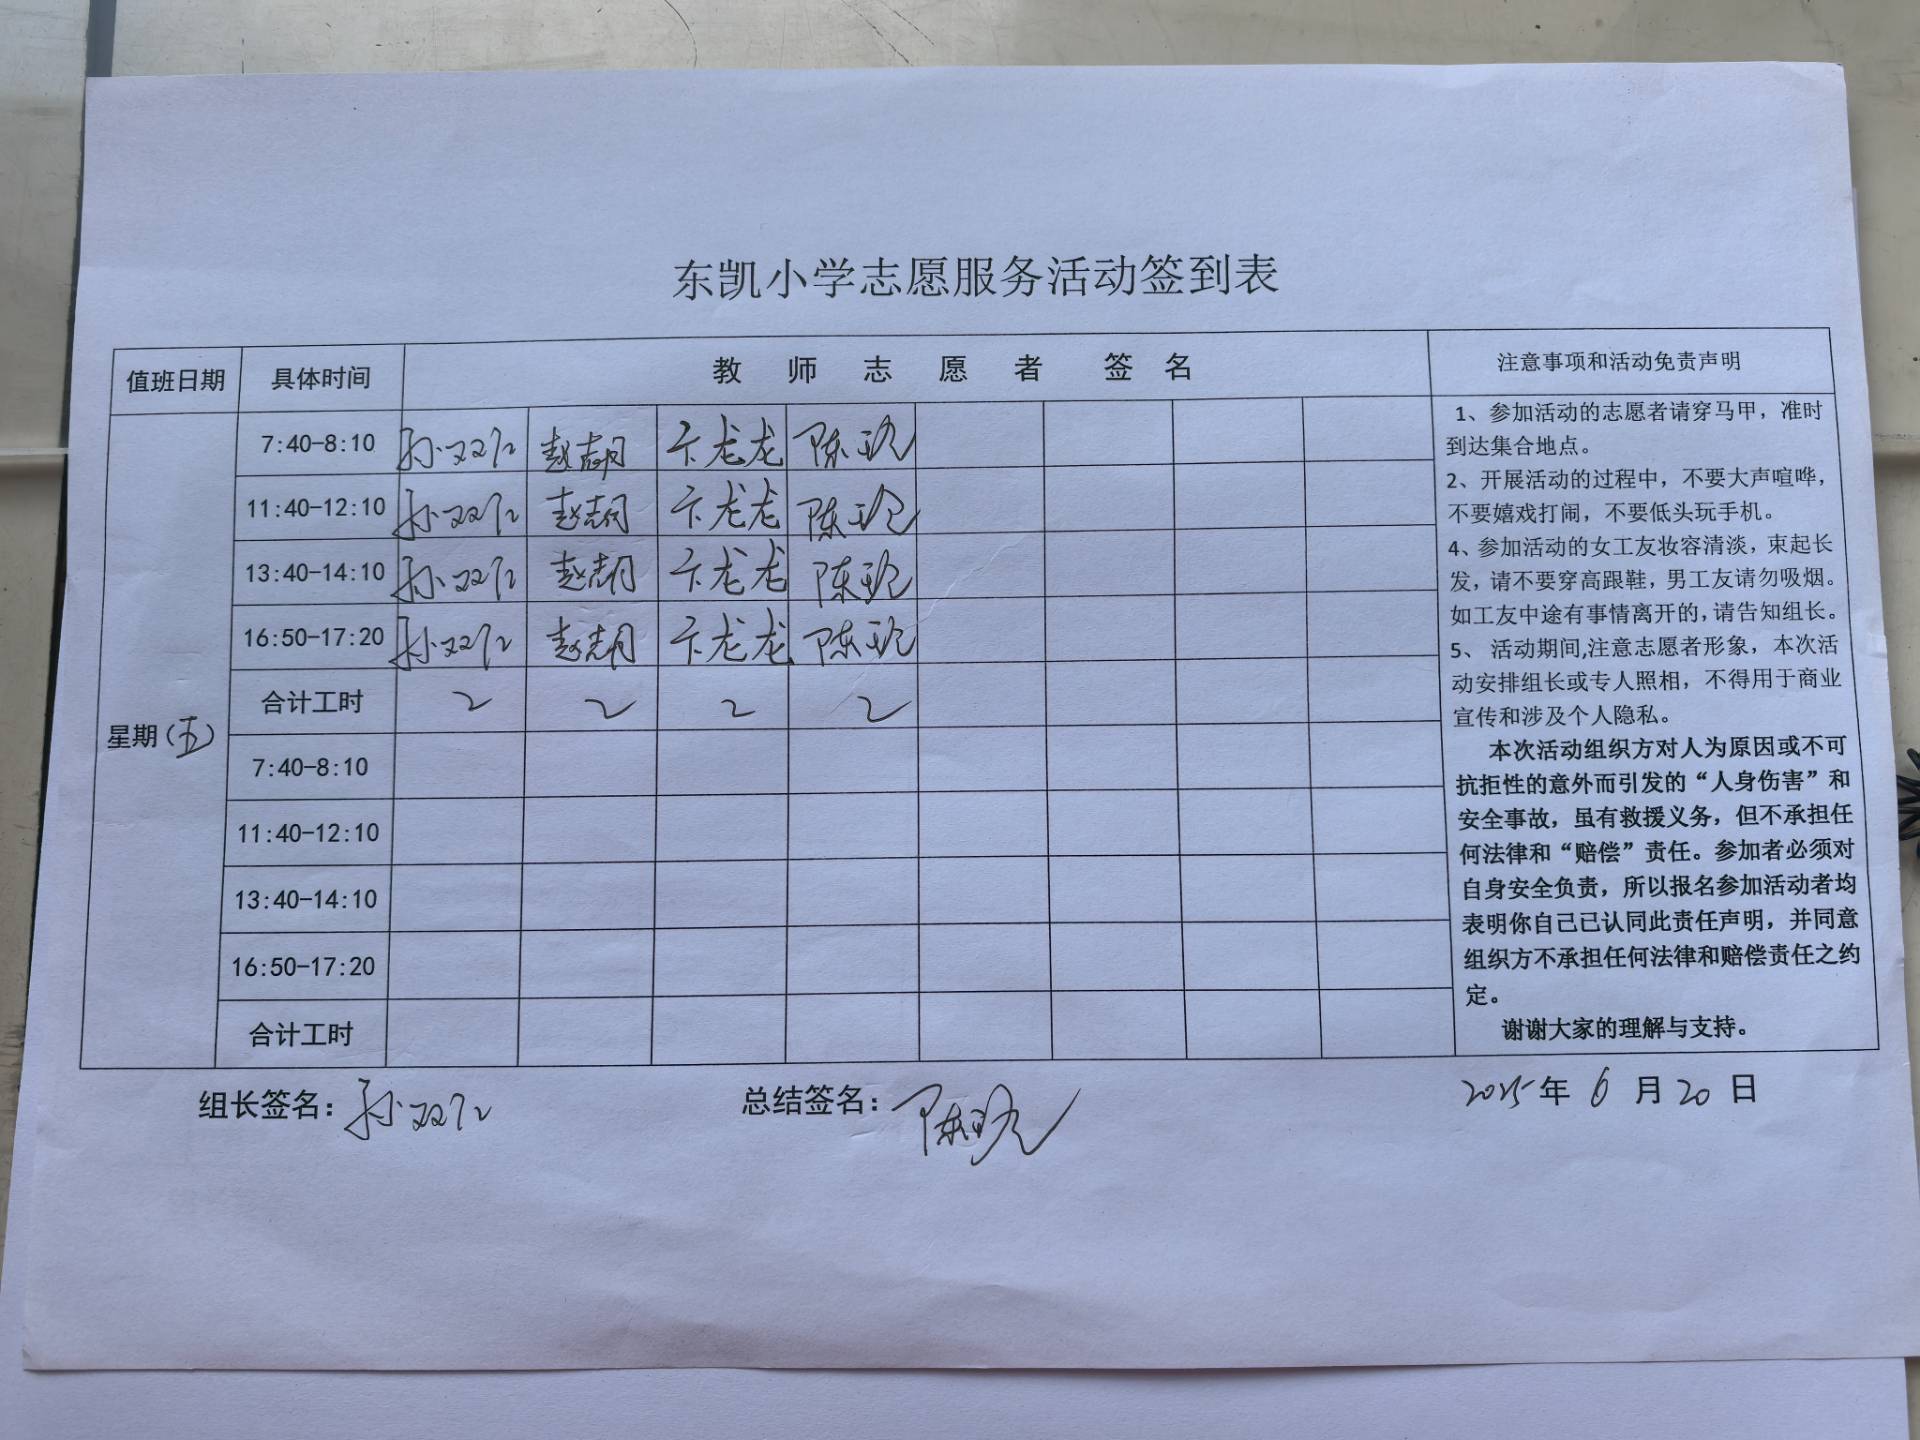 东凯小学志愿服务活动签到表
值班日期 具体时间 教师志愿者 签名 注意事项和活动免责声明
星期(五)
7:40-8:10 孙双 赵 卞龙龙 陈
11:40-12:10 孙双 赵 卞龙龙 陈
13:40-14:10 孙双 赵 卞龙龙 陈
16:50-17:20 孙双 赵 卞龙龙 陈
合计工时 2 2 2 2
7:40-8:10
11:40-12:10
13:40-14:10
16:50-17:20
合计工时
1、参加活动的志愿者请穿马甲，准时
到达集合地点。
2、开展活动的过程中，不要大声喧哗，
不要嬉戏打闹，不要低头玩手机。
4、参加活动的女工友妆容清淡，束起长
发，请不要穿高跟鞋，男工友请勿吸烟。
如工友中途有事情离开的，请告知组长。
5、 活动期间,注意志愿者形象，本次活
动安排组长或专人照相，不得用于商业
宣传和涉及个人隐私。
本次活动组织方对人为原因或不可
抗拒性的意外而引发的“人身伤害”和
安全事故，虽有救援义务，但不承担任
何法律和“赔偿”责任。参加者必须对
自身安全负责，所以报名参加活动者均
表明你自己已认同此责任声明，并同意
组织方不承担任何法律和赔偿责任之约
定。
谢谢大家的理解与支持。
组长签名：孙双 总结签名：陈 2025年6月20日